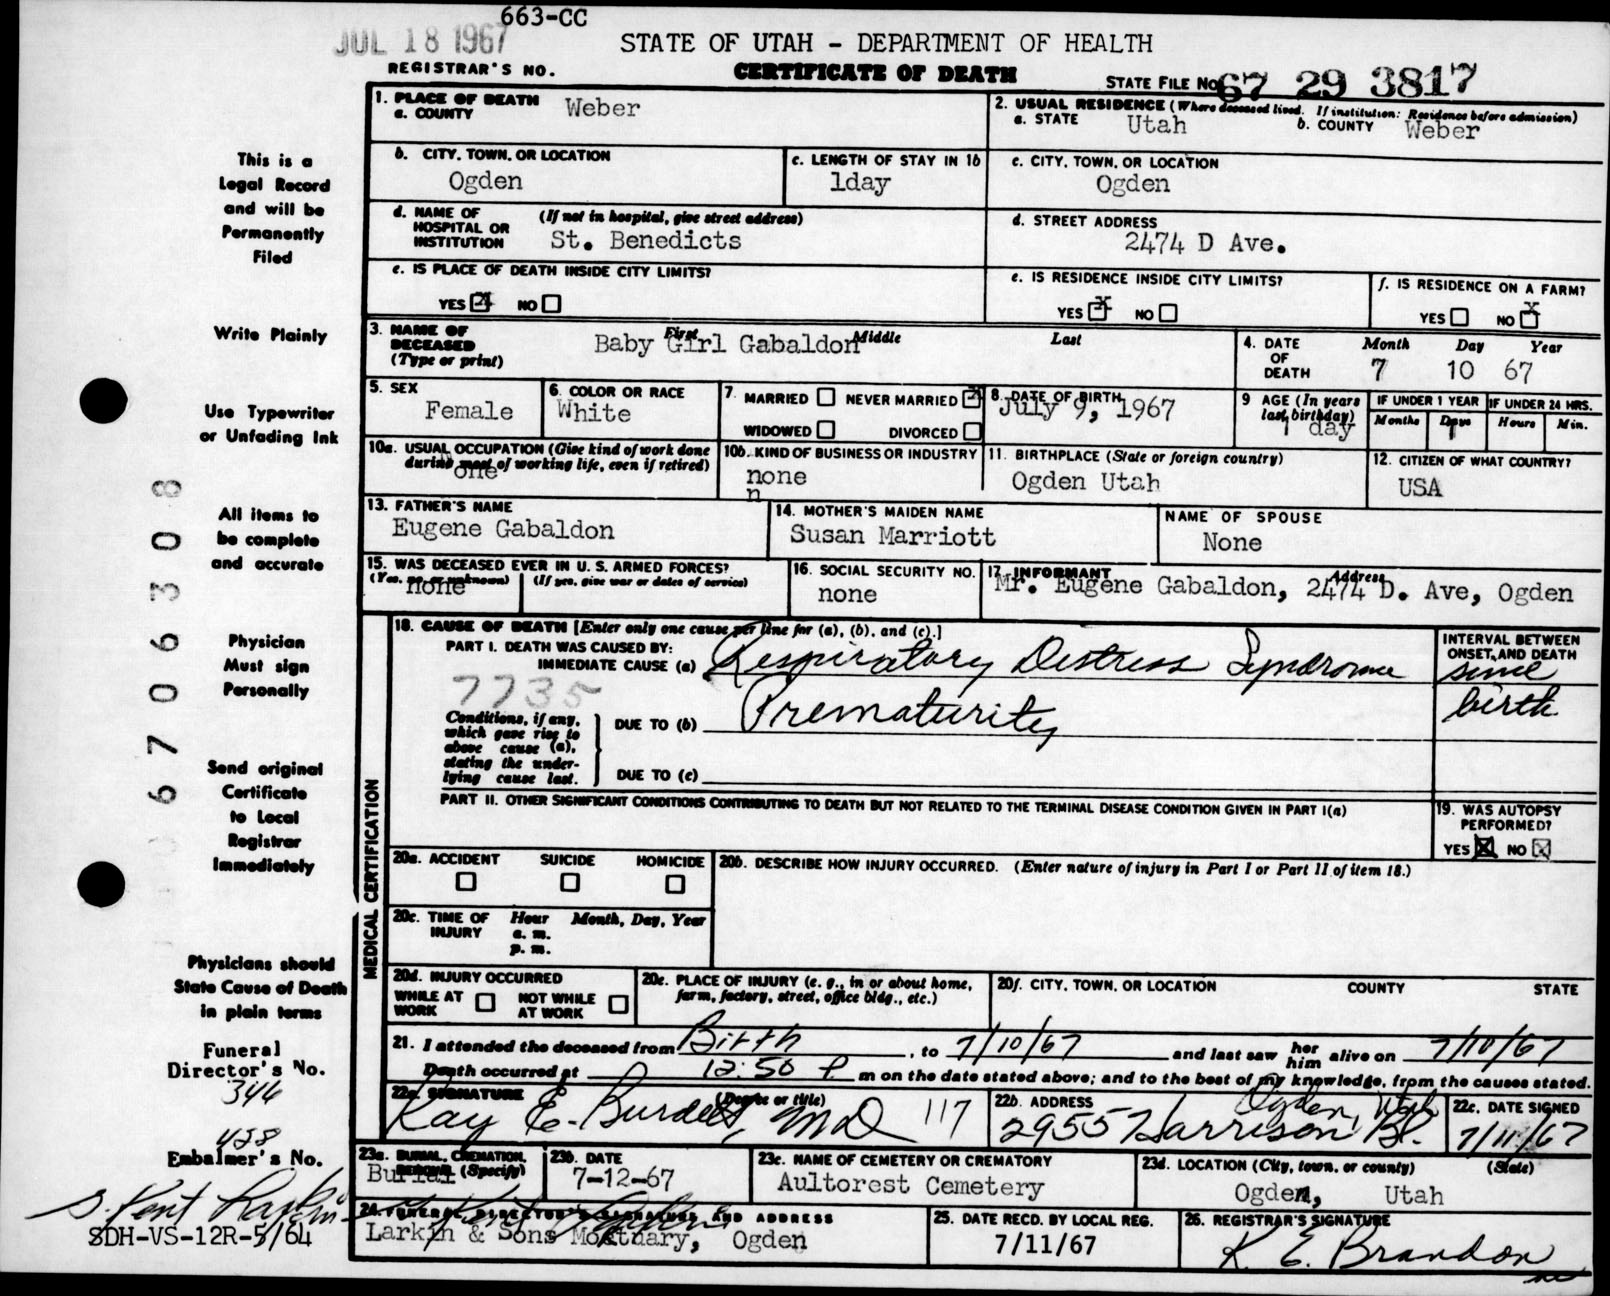 663-CC
JUL 18 1967
STATE OF UTAH - DEPARTMENT OF HEALTH
REGISTRAR'S NO.
CERTIFICATE OF DEATH
STATE FILE NO. 67 29 3817
1. PLACE OF DEATH
a. COUNTY Weber
2. USUAL RESIDENCE (Where deceased lived. If institution: Residence before admission)
a. STATE Utah b. COUNTY Weber
b. CITY, TOWN, OR LOCATION
Ogden
c. LENGTH OF STAY IN 1b
1day
c. CITY, TOWN, OR LOCATION
Ogden
d. NAME OF HOSPITAL OR INSTITUTION (If not in hospital, give street address)
St. Benedicts
d. STREET ADDRESS
2474 D Ave.
e. IS PLACE OF DEATH INSIDE CITY LIMITS?
YES X NO
e. IS RESIDENCE INSIDE CITY LIMITS?
YES X NO
f. IS RESIDENCE ON A FARM?
YES NO X
3. NAME OF DECEASED (Type or print)
First Middle Last
Baby Girl Gabaldon
4. DATE OF DEATH
Month Day Year
7 10 67
5. SEX
Female
6. COLOR OR RACE
White
7. MARRIED NEVER MARRIED X
WIDOWED DIVORCED
8. DATE OF BIRTH
July 9, 1967
9 AGE (In years last birthday)
1 day
IF UNDER 1 YEAR
Months Days
1
IF UNDER 24 HRS.
Hours Min.
10a. USUAL OCCUPATION (Give kind of work done during most of working life, even if retired)
one
10b. KIND OF BUSINESS OR INDUSTRY
none
n
11. BIRTHPLACE (State or foreign country)
Ogden Utah
12. CITIZEN OF WHAT COUNTRY?
USA
13. FATHER'S NAME
Eugene Gabaldon
14. MOTHER'S MAIDEN NAME
Susan Marriott
NAME OF SPOUSE
None
15. WAS DECEASED EVER IN U. S. ARMED FORCES?
(Yes, no, or unknown) (If yes, give war or dates of service)
none
16. SOCIAL SECURITY NO.
none
17. INFORMANT Address
Mr. Eugene Gabaldon, 2474 D. Ave, Ogden
18. CAUSE OF DEATH [Enter only one cause per line for (a), (b), and (c).]
PART I. DEATH WAS CAUSED BY:
IMMEDIATE CAUSE (a) Respiratory Distress Syndrome
7735
Conditions, if any, which gave rise to above cause (a), stating the underlying cause last.
DUE TO (b) Prematurity
DUE TO (c)
INTERVAL BETWEEN ONSET AND DEATH
since
birth
PART II. OTHER SIGNIFICANT CONDITIONS CONTRIBUTING TO DEATH BUT NOT RELATED TO THE TERMINAL DISEASE CONDITION GIVEN IN PART I(a)
19. WAS AUTOPSY PERFORMED?
YES X NO X
20a. ACCIDENT SUICIDE HOMICIDE
20b. DESCRIBE HOW INJURY OCCURRED. (Enter nature of injury in Part I or Part II of item 18.)
20c. TIME OF INJURY Hour Month, Day, Year
a. m.
p. m.
20d. INJURY OCCURRED
WHILE AT WORK NOT WHILE AT WORK
20e. PLACE OF INJURY (e. g., in or about home, farm, factory, street, office bldg., etc.)
20f. CITY, TOWN, OR LOCATION COUNTY STATE
21. I attended the deceased from Birth, to 7/10/67 and last saw her him alive on 7/10/67
Death occurred at 12:50 P m on the date stated above; and to the best of my knowledge, from the causes stated.
22a. SIGNATURE (Degree or title)
Kay E. Burdett, MD 117
22b. ADDRESS
Ogden, Utah
2955 Harrison Bl.
22c. DATE SIGNED
7/11/67
23a. BURIAL, CREMATION, REMOVAL (Specify)
Burial
23b. DATE
7-12-67
23c. NAME OF CEMETERY OR CREMATORY
Aultorest Cemetery
23d. LOCATION (City, town, or county) (State)
Ogden, Utah
24. FUNERAL DIRECTOR'S SIGNATURE AND ADDRESS
Larkin & Sons Mortuary, Ogden
25. DATE RECD. BY LOCAL REG.
7/11/67
26. REGISTRAR'S SIGNATURE
K. E. Brandon
MEDICAL CERTIFICATION
This is a
Legal Record
and will be
Permanently
Filed
Write Plainly
Use Typewriter
or Unfading Ink
All items to
be complete
and accurate
Physician
Must sign
Personally
Send original
Certificate
to Local
Registrar
Immediately
Physicians should
State Cause of Death
in plain terms
Funeral
Director's No.
346
458
Embalmer's No.
S. Kent Larkin
SDH-VS-12R-5/64
67 06308